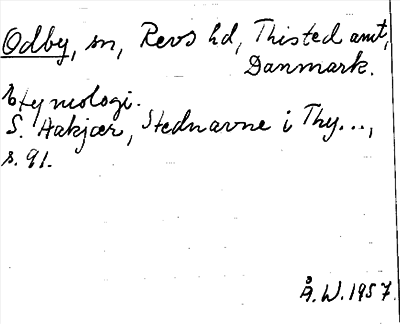 Odby, sn, Revs hd, Thisted amt,
Danmark.
Etymologi.
S. Aakjær, Stednavne i Thy...,
s. 91.
Å.W. 1957.